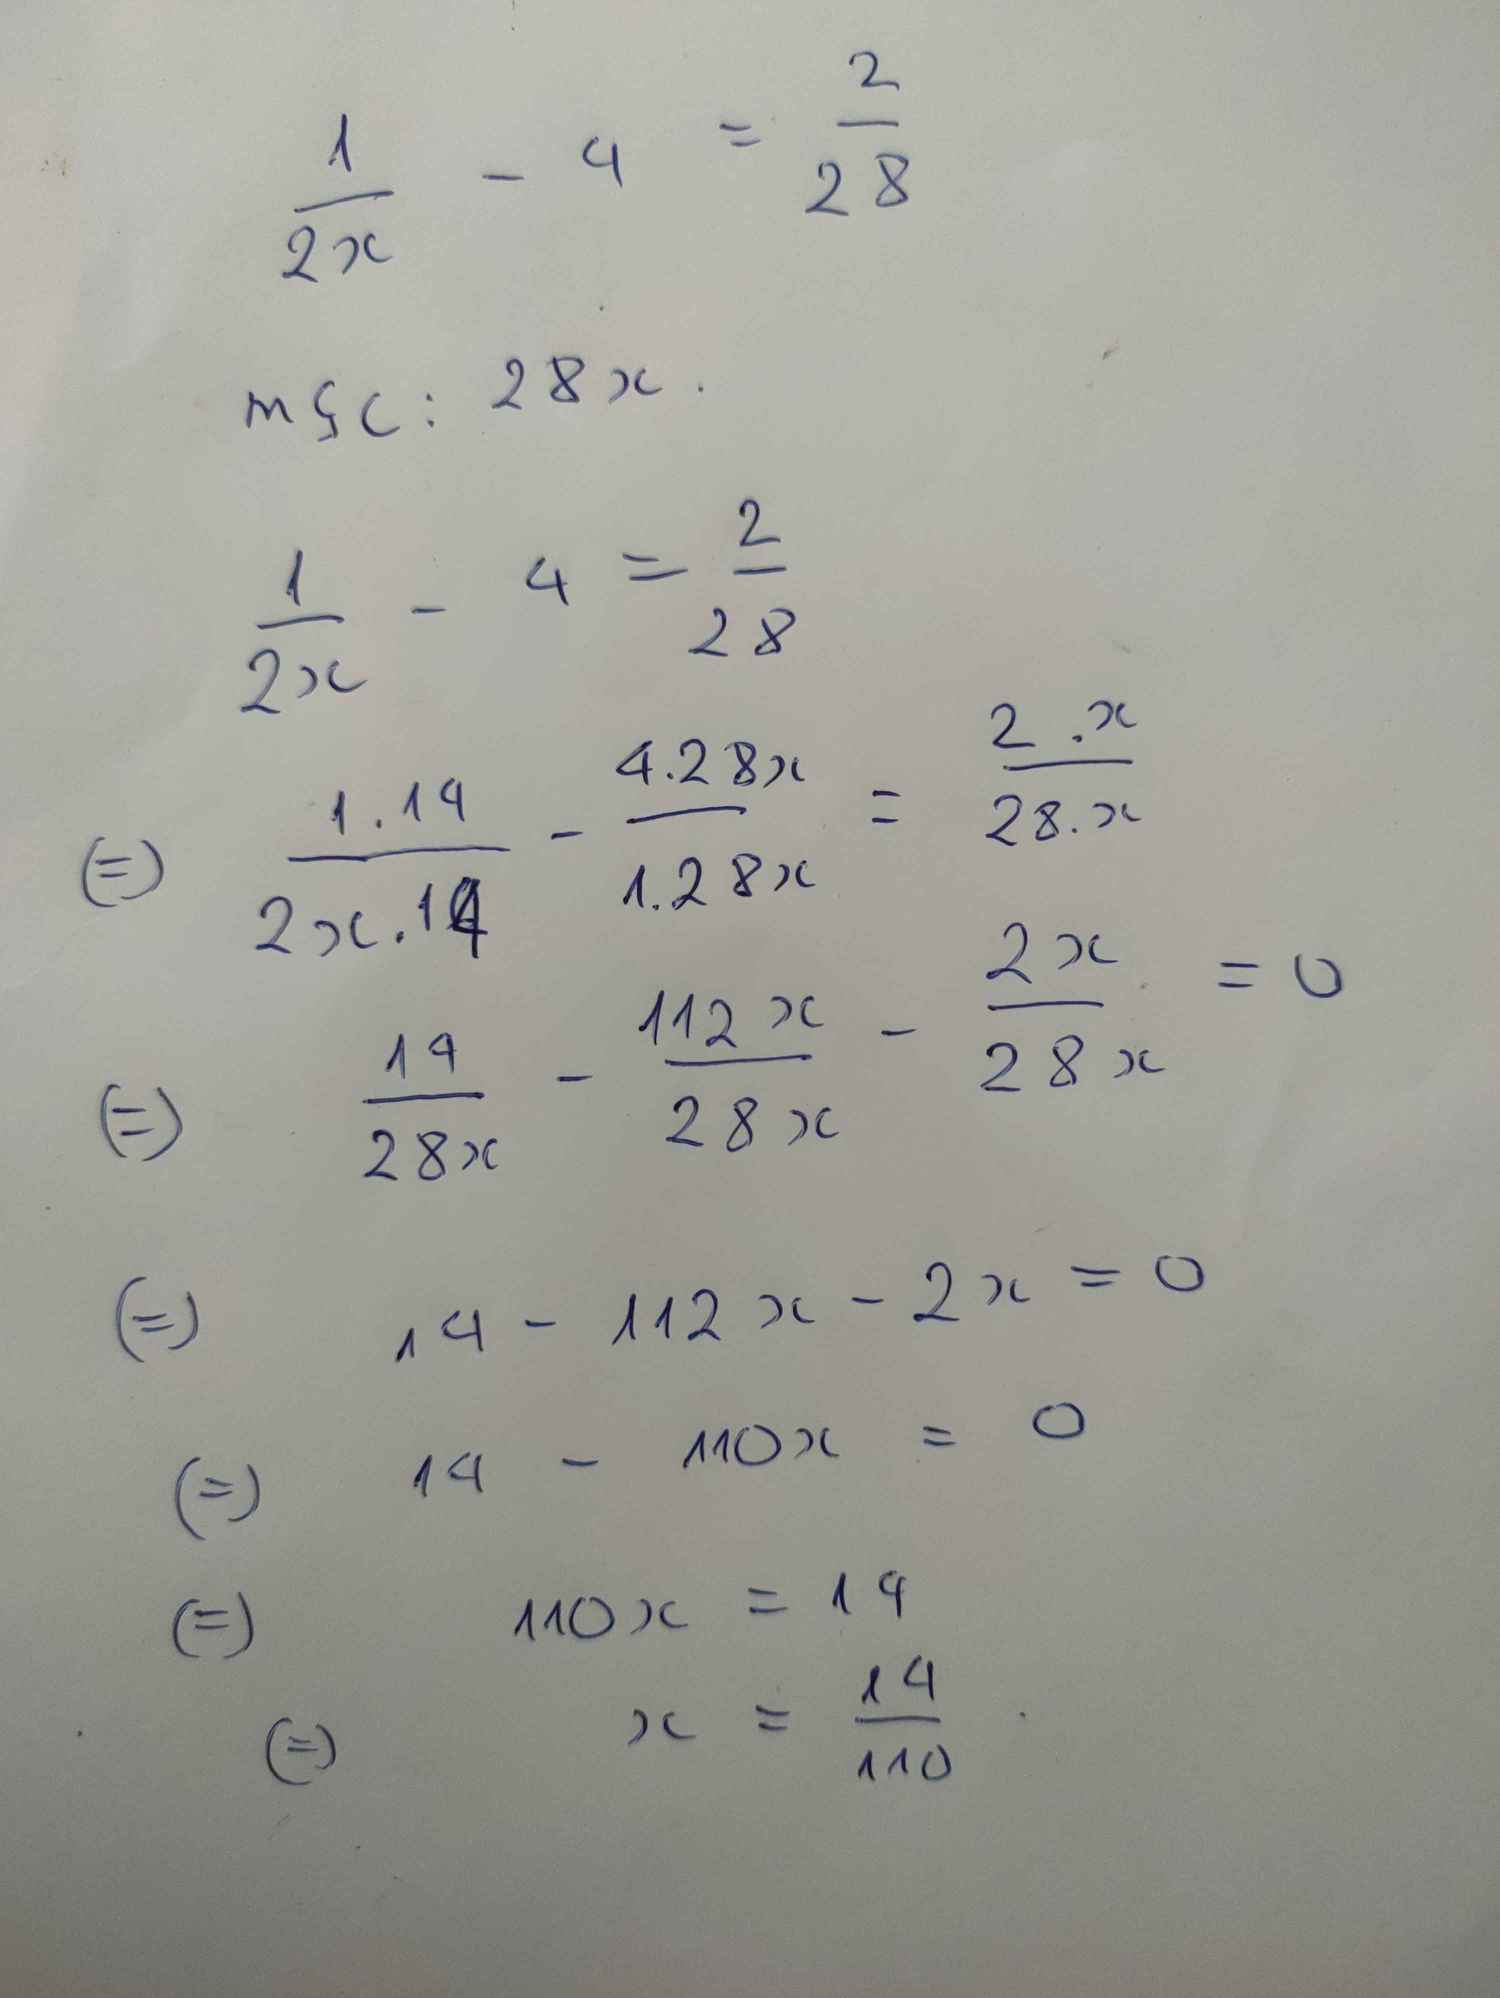 1/2x - 4 = 2/28
MSC: 28x.
1/2x - 4 = 2/28
(=) 1.14/2x.14 - 4.28x/1.28x = 2.x/28.x
(=) 14/28x - 112x/28x - 2x/28x = 0
(=) 14 - 112x - 2x = 0
(=) 14 - 110x = 0
(=) 110x = 14
(=) x = 14/110